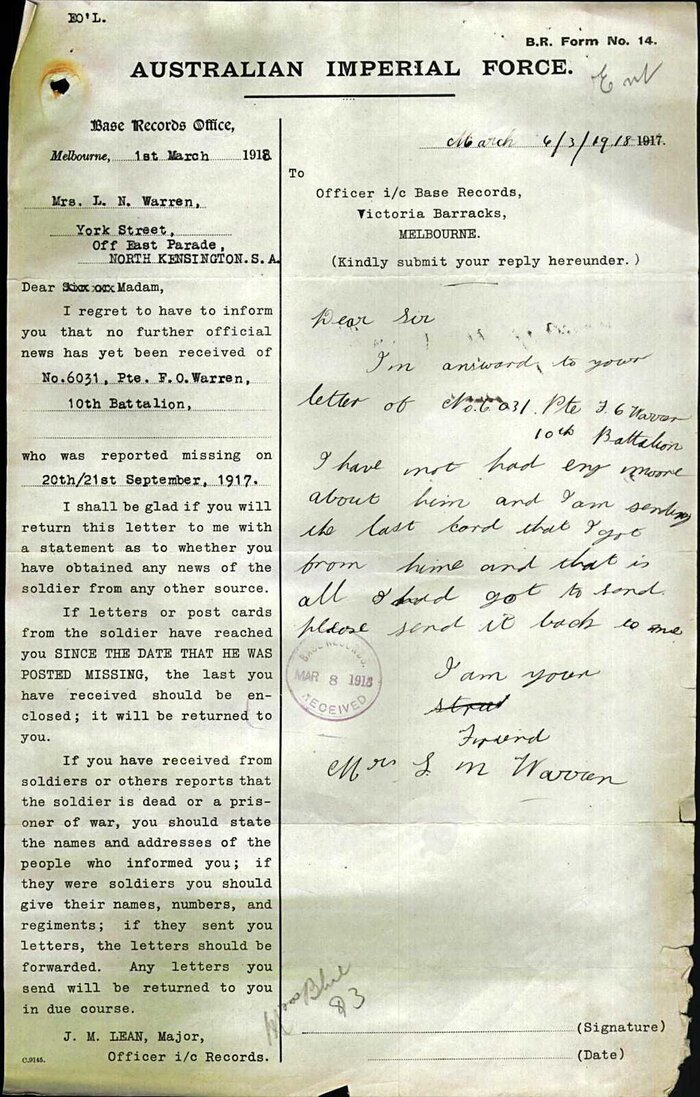 EO'L.
B.R. Form No. 14.
AUSTRALIAN IMPERIAL FORCE.
Base Records Office,
Melbourne, 1st March 1918
Mrs. L. N. Warren,
York Street,
Off East Parade,
NORTH KENSINGTON.S.A.
Dear Madam,
I regret to have to inform
you that no further official
news has yet been received of
No.6031, Pte. F.O.Warren,
10th Battalion,
who was reported missing on
20th/21st September, 1917.
I shall be glad if you will
return this letter to me with
a statement as to whether you
have obtained any news of the
soldier from any other source.
If letters or post cards
from the soldier have reached
you SINCE THE DATE THAT HE WAS
POSTED MISSING, the last you
have received should be en-
closed; it will be returned to
you.
If you have received from
soldiers or others reports that
the soldier is dead or a pris-
oner of war, you should state
the names and addresses of the
people who informed you; if
they were soldiers you should
give their names, numbers, and
regiments; if they sent you
letters, the letters should be
forwarded. Any letters you
send will be returned to you
in due course.
J. M. LEAN, Major,
Officer i/c Records.
C.9145.
March 6/3/1918 1917.
To
Officer i/c Base Records,
Victoria Barracks,
MELBOURNE.
(Kindly submit your reply hereunder.)
Dear Sir
I'm answard to your
letter of No.6031. Pte F 6 Warren
10th Battalion
I have not had eny moore
about him and I am sending
the last card that I got
from hime and that is
all I had got to send.
please send it back to me
I am your
Friend
Mrs L N Warren
BASE RECORDS.
MAR 8 1918
RECEIVED
83
(Signature)
(Date)